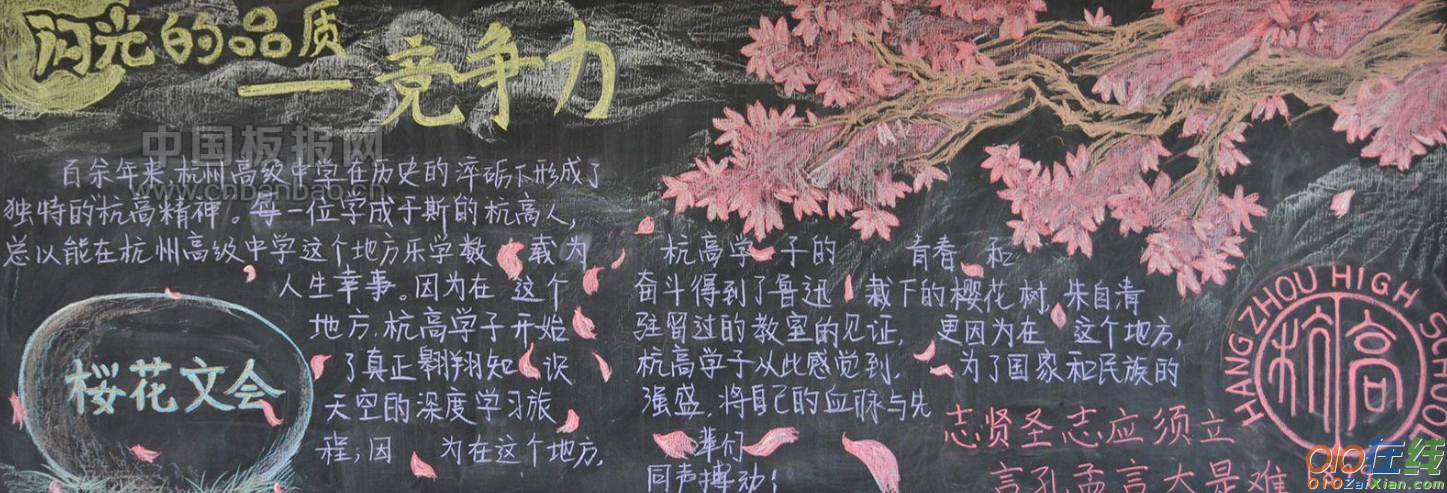 闪光的品质
——竞争力
中国板报网
www.cnbanbao.cn
百余年来,杭州高级中学在历史的淬砺下形成了
独特的杭高精神。每一位学成于斯的杭高人,
总以能在杭州高级中学这个地方乐学数载为
人生幸事。因为在这个
地方,杭高学子开始
了真正翱翔知识
天空的深度学习旅
程;因为在这个地方,
杭高学子的青春和
奋斗得到了鲁迅栽下的樱花树,朱自清
驻留过的教室的见证,更因为在这个地方,
杭高学子以此感觉到,为了国家和民族的
强盛,将自己的血脉与先
辈们
同声搏动!
樱花文会
志贤圣志应须立
言孔孟言大是难
HANGZHOU HIGH SCHOOL
杭高
010在线
010ZaiXian.com